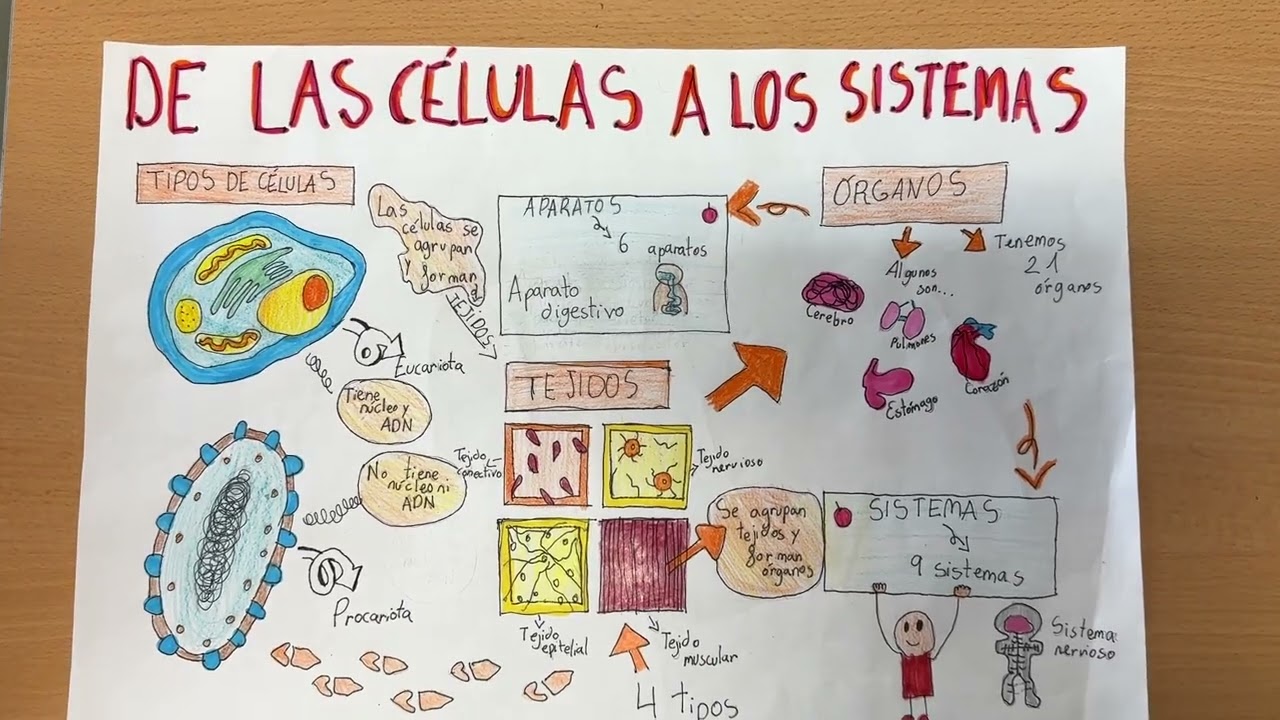 DE LAS CÉLULAS A LOS SISTEMAS
TIPOS DE CÉLULAS
Las
células se
agrupan
y forman
TEJIDOS
Eucariota
Tiene
núcleo y
ADN
No tiene
núcleo ni
ADN
Procariota
APARATOS
6 aparatos
Aparato
digestivo
TEJIDOS
Tejido
conectivo
Tejido
nervioso
Tejido
epitelial
Tejido
muscular
4 tipos
Se agrupan
tejidos y
forman
órganos
ÓRGANOS
Algunos
son...
Tenemos
21
órganos
Cerebro
Pulmones
Corazón
Estómago
SISTEMAS
9 sistemas
Sistema
nervioso